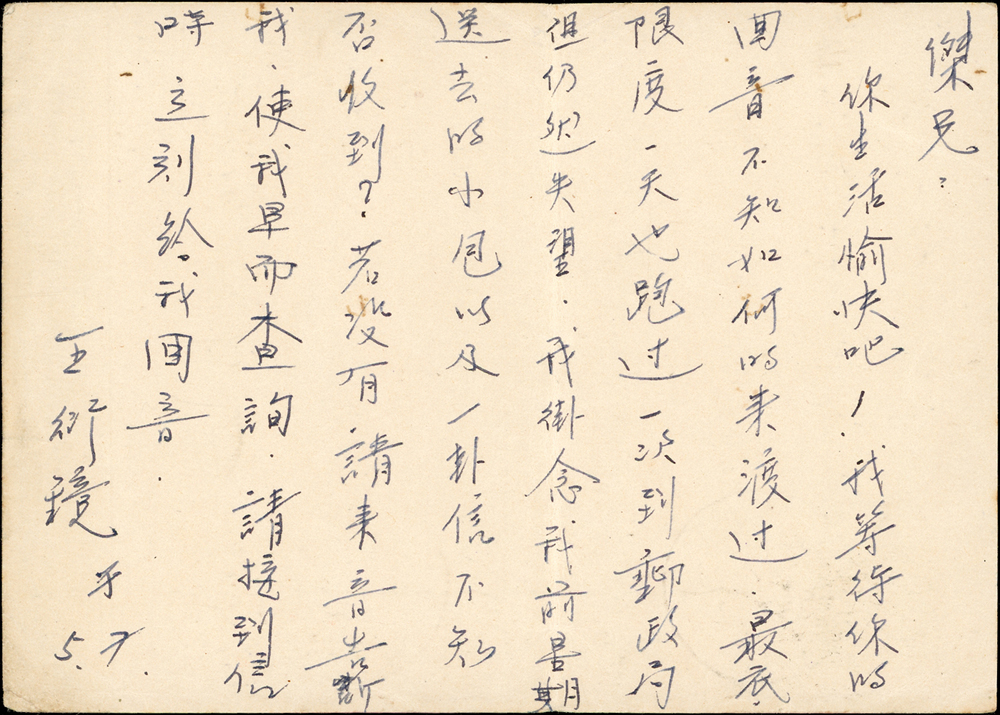 傑兄：
你生活愉快吧！我等待你的
回音不知如何的来渡过．最底
限度一天也跑过一次到郵政局
但仍然失望．我掛念我前星期
送去的小包以及一卦信不知
否收到？．若没有請来音告訴
我．使我早而查詢．請接到信
時立刻给我回音．
王衍璄 手
5.7.